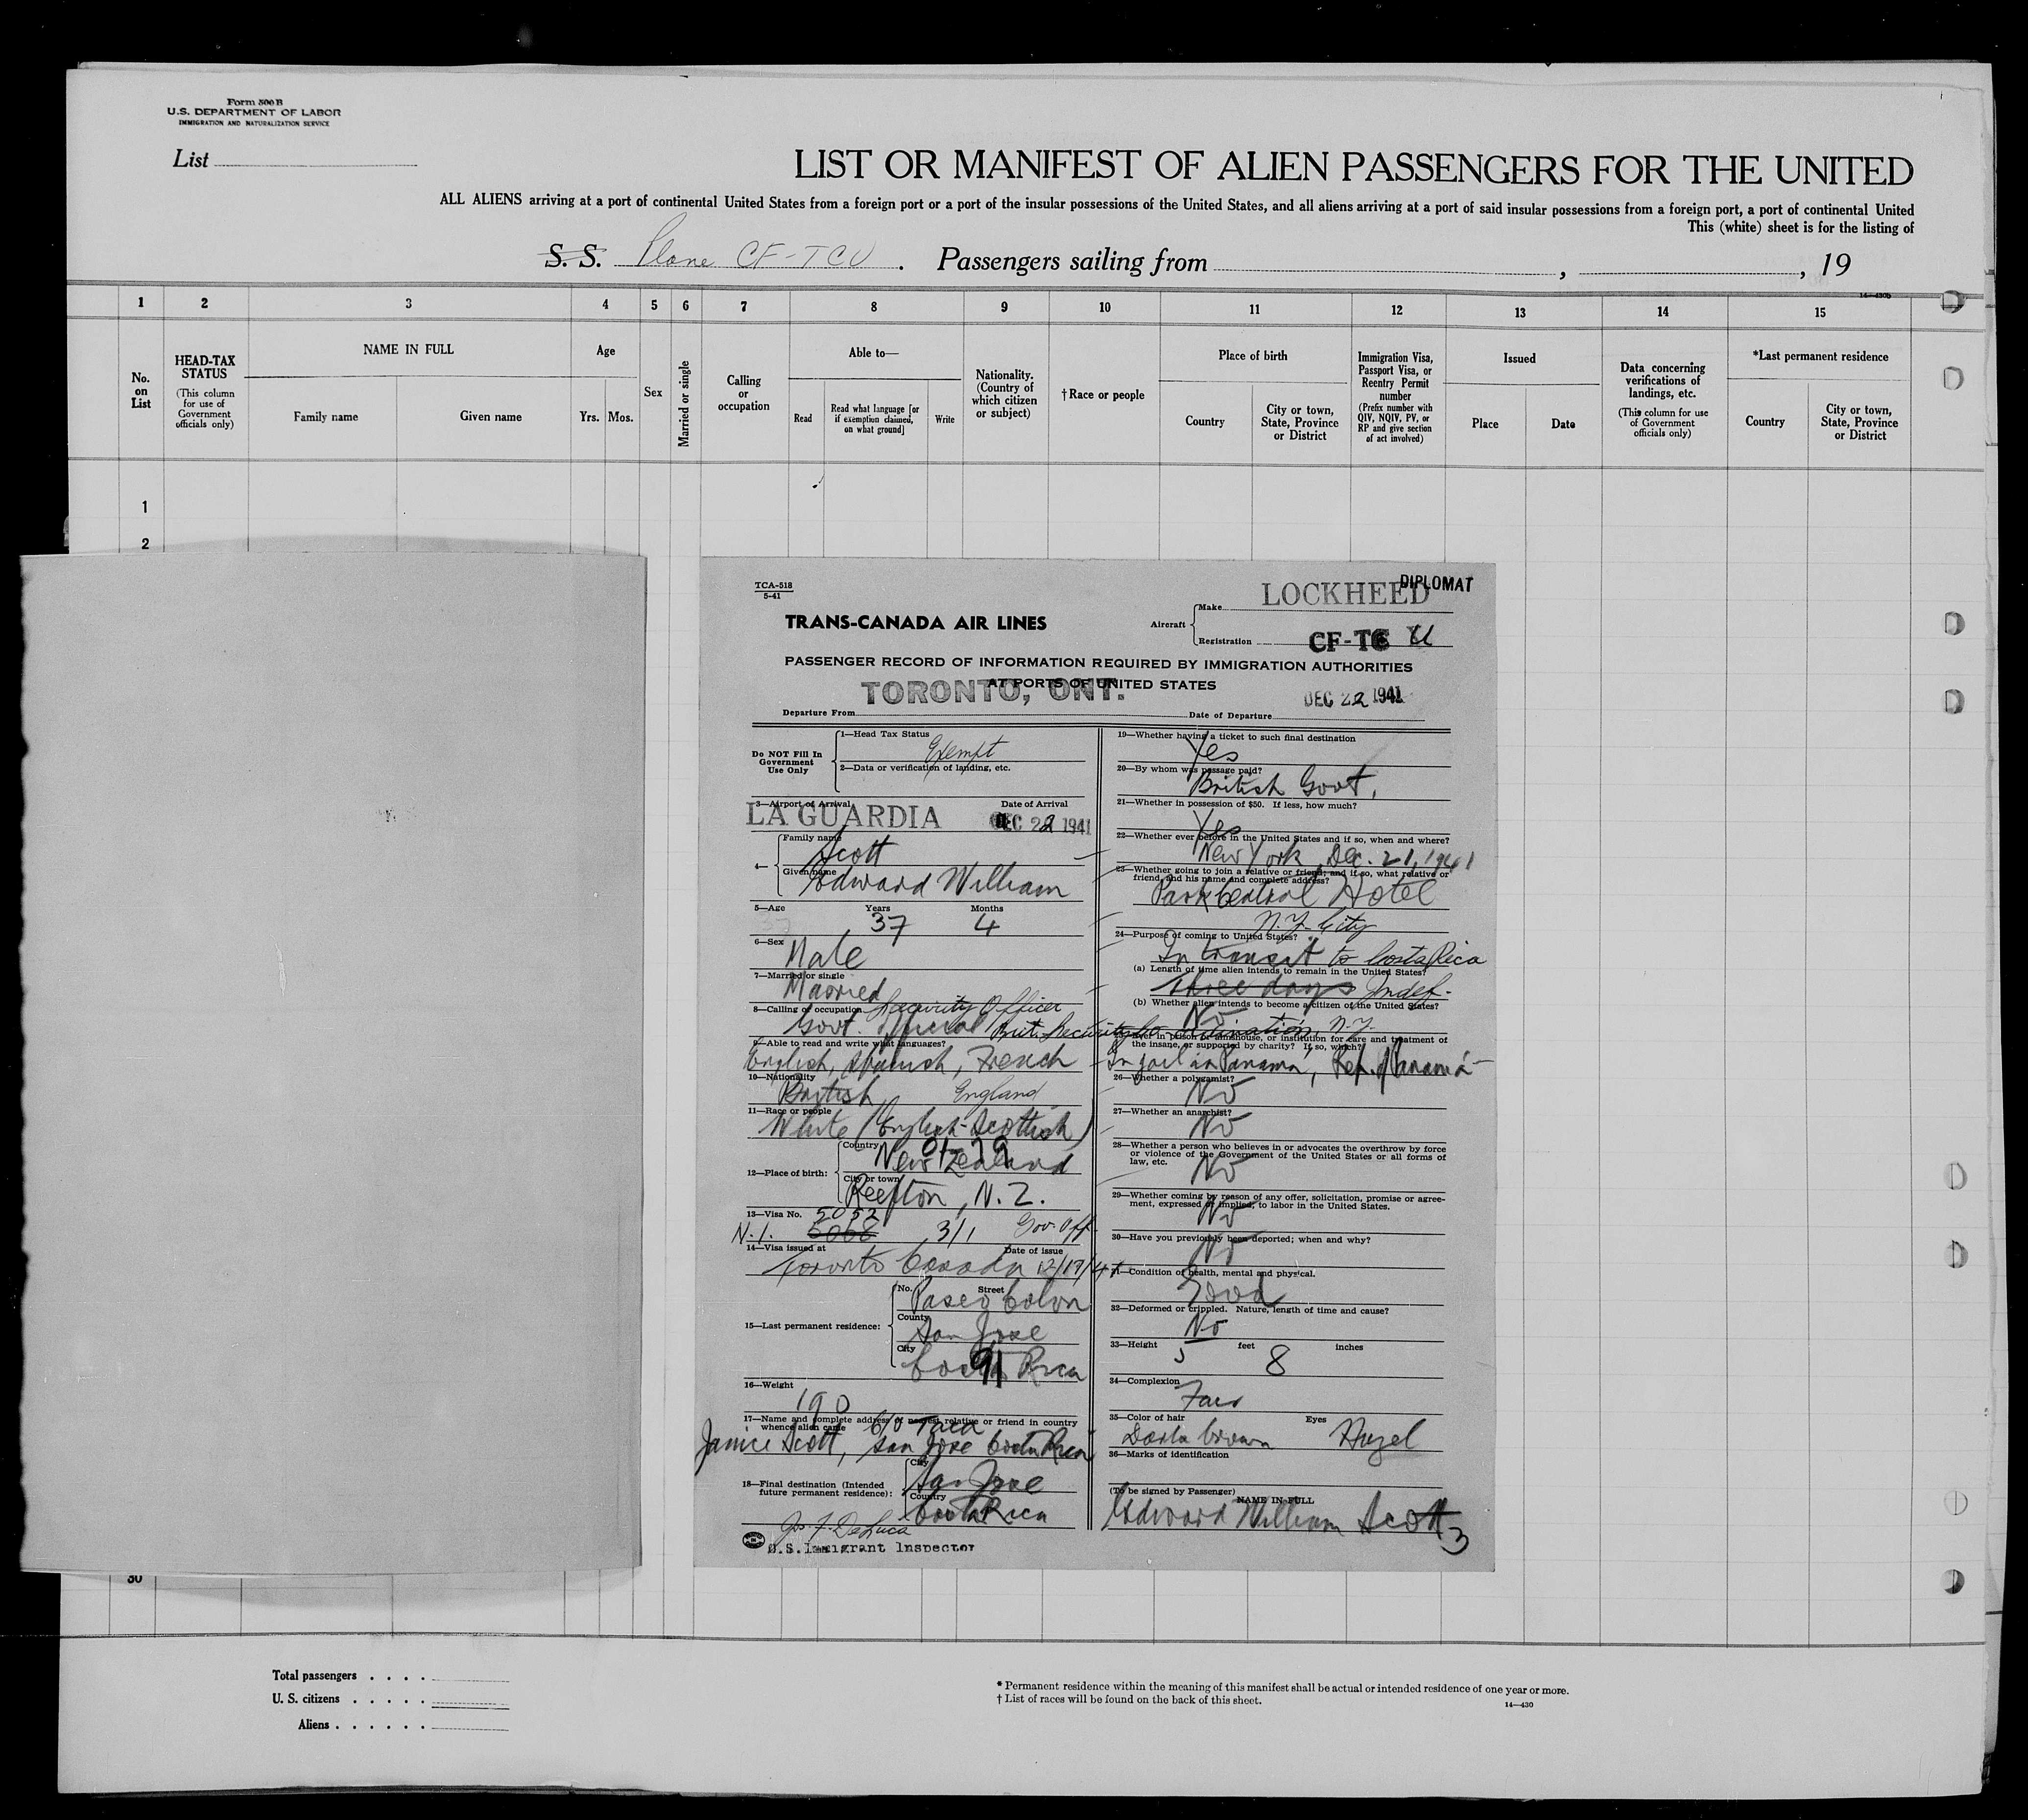 Form 500 B
U.S. DEPARTMENT OF LABOR
IMMIGRATION AND NATURALIZATION SERVICE
List
LIST OR MANIFEST OF ALIEN PASSENGERS FOR THE UNITED
ALL ALIENS arriving at a port of continental United States from a foreign port or a port of the insular possessions of the United States, and all aliens arriving at a port of said insular possessions from a foreign port, a port of continental United
This (white) sheet is for the listing of
S. S. Plane CF-TCU. Passengers sailing from , , 19
14-430b
1 2 3 4 5 6 7 8 9 10 11 12 13 14 15
No. on List
HEAD-TAX STATUS
(This column for use of Government officials only)
NAME IN FULL
Family name
Given name
Age
Yrs. Mos.
Sex
Married or single
Calling or occupation
Able to—
Read
Read what language [or if exemption claimed, on what ground]
Write
Nationality. (Country of which citizen or subject)
†Race or people
Place of birth
Country
City or town, State, Province or District
Immigration Visa, Passport Visa, or Reentry Permit number
(Prefix number with QIV, NQIV, PV, or RP and give section of act involved)
Issued
Place
Date
Data concerning verifications of landings, etc.
(This column for use of Government officials only)
*Last permanent residence
Country
City or town, State, Province or District
1
2
30
TCA-518
5-41
DIPLOMAT
TRANS-CANADA AIR LINES
Aircraft
Make LOCKHEED
Registration CF-TC U
PASSENGER RECORD OF INFORMATION REQUIRED BY IMMIGRATION AUTHORITIES
AT PORTS OF UNITED STATES
Departure From TORONTO, ONT. Date of Departure DEC 22 1941
Do NOT Fill In Government Use Only
1—Head Tax Status
Exempt
2—Data or verification of landing, etc.
3—Airport of Arrival Date of Arrival
LA GUARDIA DEC 22 1941
4—
Family name
Scott
Given name
Edward William
5—Age Years Months
37 4
6—Sex
Male
7—Married or single
Married
8—Calling of occupation Security Officer
Govt. Official Brit. Security Co-ordination, N.Y.
9—Able to read and write what languages?
English, Spanish, French
10—Nationality
British England
11—Race or people
White (English-Scottish)
12—Place of birth:
Country
New Zealand
City or town
Reefton, N.Z.
13—Visa No. 5052
N.I. 5068 3/1 Gov. Off.
14—Visa issued at Date of issue
Toronto Canada 12/19/41
15—Last permanent residence:
No. Street
Paseo Colon
County
San Jose
City
Costa Rica
91
16—Weight
190
17—Name and complete address of nearest relative or friend in country whence alien came
c/o Taca
Janice Scott, San Jose Costa Rica
18—Final destination (Intended future permanent residence):
City
San Jose
Country
Costa Rica
Jos. F. DeLuca
U.S. Immigrant Inspector
19—Whether having a ticket to such final destination
Yes
20—By whom was passage paid?
British Govt.
21—Whether in possession of $50. If less, how much?
Yes
22—Whether ever before in the United States and if so, when and where?
New York Dec. 21, 1941
23—Whether going to join a relative or friend; and if so, what relative or friend, and his name and complete address?
Park Central Hotel
N.Y. City
24—Purpose of coming to United States?
In transit to Costa Rica
(a) Length of time alien intends to remain in the United States?
three days Indef.
(b) Whether alien intends to become a citizen of the United States?
No
25—Ever in prison or almshouse, or institution for care and treatment of the insane, or supported by charity? If so, which?
In jail in Panama, Rep. of Panamá
26—Whether a polygamist?
No
27—Whether an anarchist?
No
28—Whether a person who believes in or advocates the overthrow by force or violence of the Government of the United States or all forms of law, etc.
No
29—Whether coming by reason of any offer, solicitation, promise or agreement, expressed or implied, to labor in the United States.
No
30—Have you previously been deported; when and why?
No
31—Condition of health, mental and physical.
Good
32—Deformed or crippled. Nature, length of time and cause?
No
33—Height 5 feet 8 inches
34—Complexion
Fair
35—Color of hair Eyes
Dark brown Hazel
36—Marks of identification
(To be signed by Passenger)
NAME IN FULL
Edward William Scott
3
Total passengers . . . .
U. S. citizens . . . . .
Aliens . . . . . .
* Permanent residence within the meaning of this manifest shall be actual or intended residence of one year or more.
† List of races will be found on the back of this sheet.
14—430